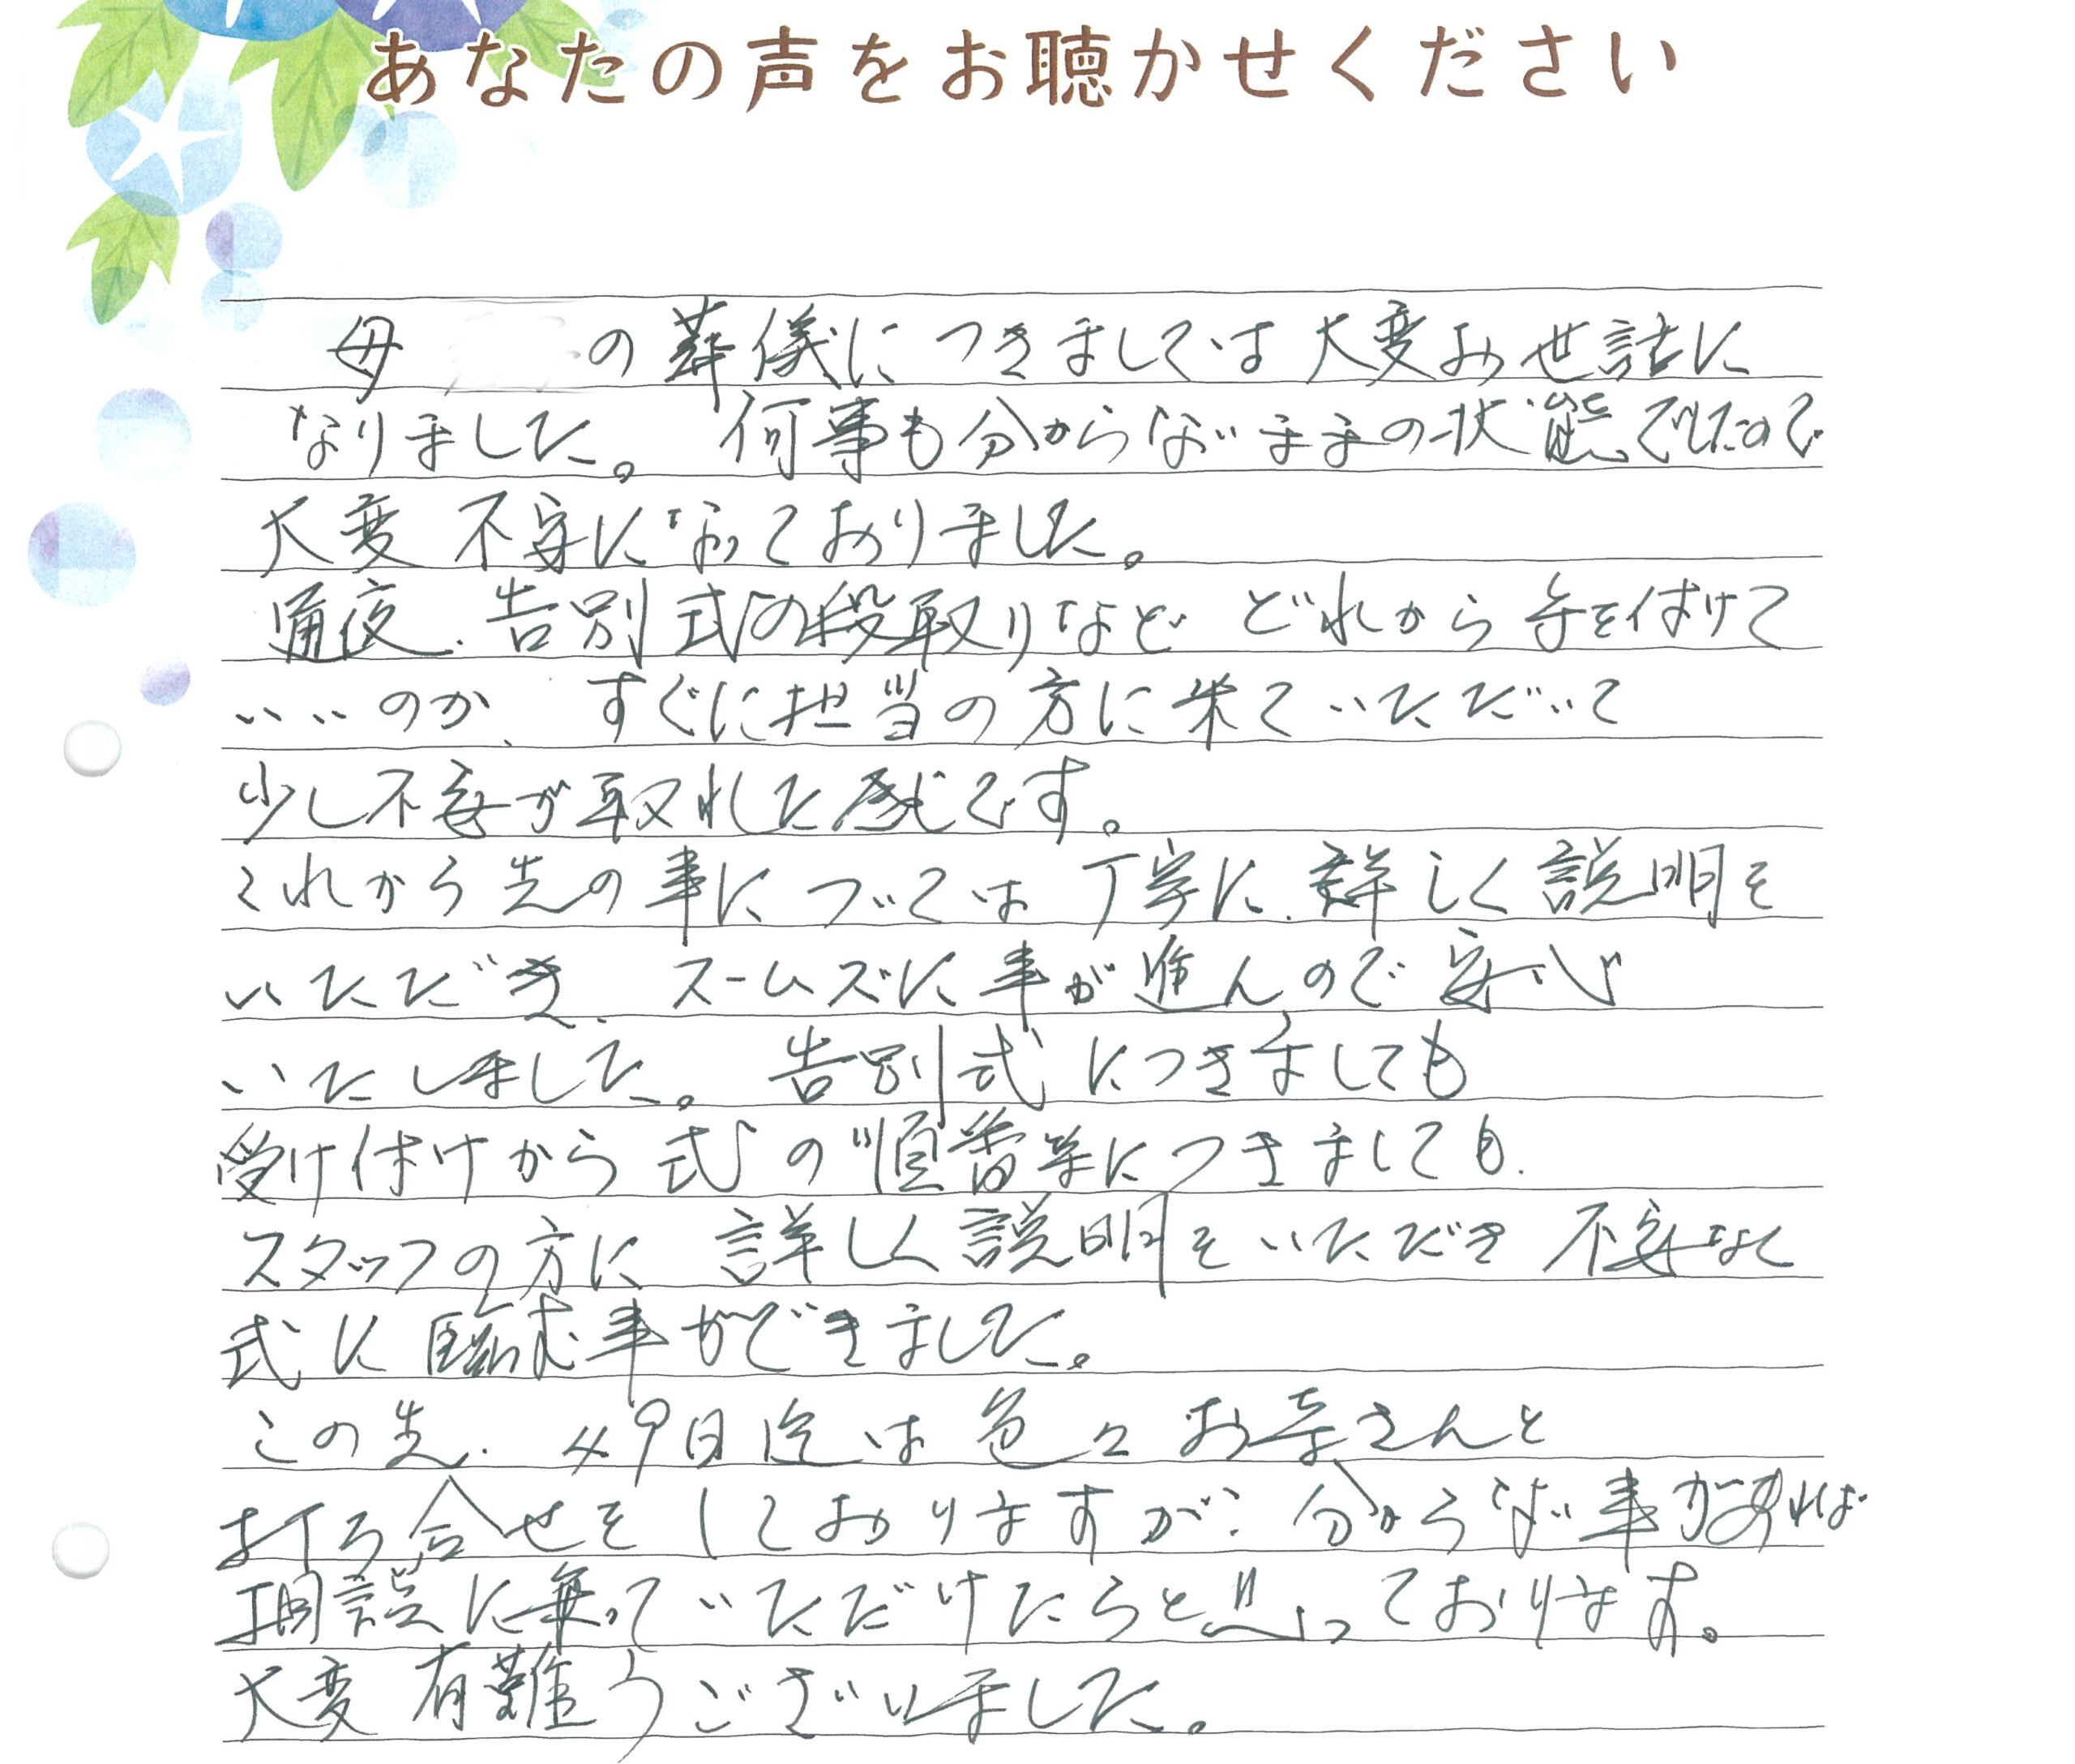 あなたの声をお聴かせください
母 の葬儀につきましては大変お世話に
なりました。何事も分からないままの状態でしたので
大変不安になっておりました。
通夜、告別式の段取りなど どれから手を付けて
いいのか、すぐに担当の方に来ていただいて
少し不安が取れた感じです。
これから先の事については丁寧に、詳しく説明を
いただき、スームズに事が進んので安心
いたしました。告別式につきましても
受け付けから式の順番等につきましても、
スタッフの方に詳しく説明をいただき不安なく
式に臨む事ができました。
この先、49日迄は色々お寺さんと
打ち合せをしておりますが、分からない事があれば
相談に乗っていただけたらと思っております。
大変有難うございました。